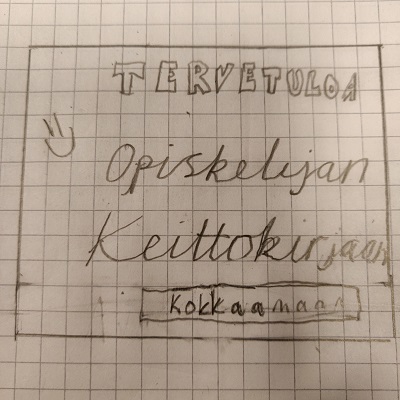 TERVETULOA
Opiskelijan
Keittokirjaan
Kokkaamaan